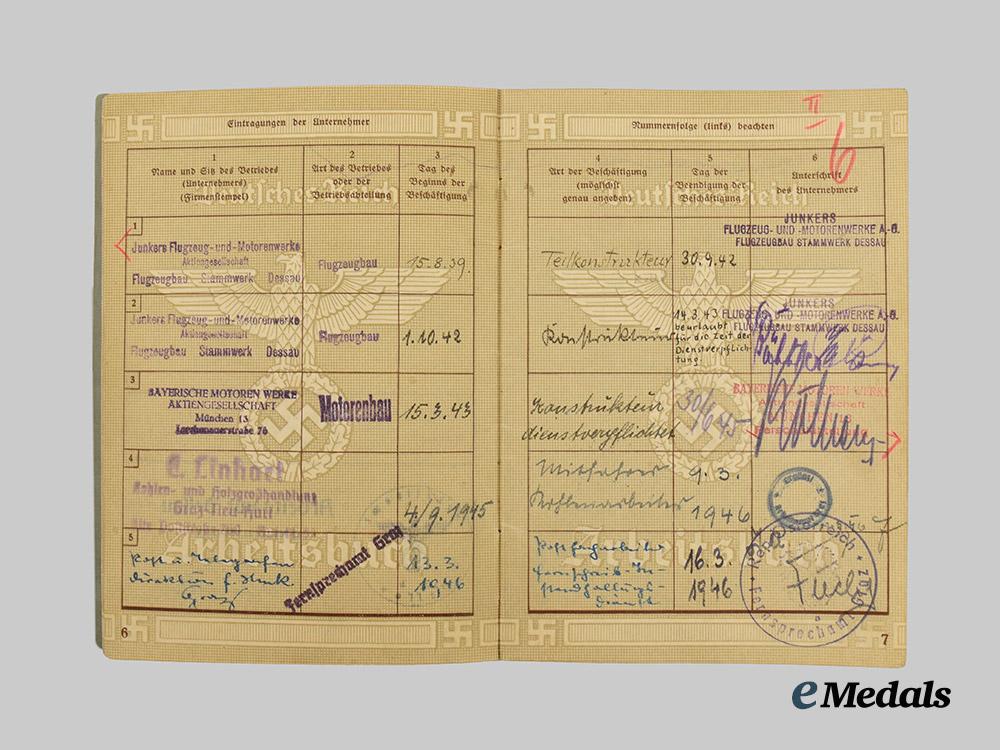 Eintragungen der Unternehmer
1
Name und Sitz des Betriebes
(Unternehmers)
(Firmenstempel)
2
Art des Betriebes
oder der
Betriebsabteilung
3
Tag des
Beginns der
Beschäftigung
1
Junkers Flugzeug-und-Motorenwerke
Aktiengesellschaft
Flugzeugbau Stammwerk Dessau
Flugzeugbau
15.8.39.
2
Junkers Flugzeug-und-Motorenwerke
Aktiengesellschaft
Flugzeugbau Stammwerk Dessau
Flugzeugbau
1.10.42
3
BAYERISCHE MOTOREN WERKE
AKTIENGESELLSCHAFT
München 13
Lerchenauerstraße 76
Motorenbau
15.3.43
4
C. Linhart
Kohlen- und Holzgroßhandlung
4/9.1945
5
Post u. Telegrafen
direktion f. Stmk.
Graz
Fernsprechamt Graz
13.3.
1946
Deutsches Reich
Arbeitsbuch
6
Nummernfolge (links) beachten
II
6
4
Art der Beschäftigung
(möglichst
genau angeben)
5
Tag der
Beendigung der
Beschäftigung
6
Unterschrift
des Unternehmers
Teilkonstrukteur
30.9.42
JUNKERS
FLUGZEUG- UND -MOTORENWERKE A.-G.
FLUGZEUGBAU STAMMWERK DESSAU
Konstrukteur
14.3.43
beurlaubt
für die Zeit der
Dienstverpflich-
tung.
JUNKERS
FLUGZEUG- UND -MOTORENWERKE A.-G.
FLUGZEUGBAU STAMMWERK DESSAU
Konstrukteur
dienstverpflichtet
30/6 45
BAYERISCHE MOTOREN WERKE
Aktiengesellschaft
Mitfahrer
Kohlenarbeiter
9.3.
1946
Postfacharbeiter
16.3.
1946
Fernsprechamt
Deutsches Reich
Arbeitsbuch
7
eMedals